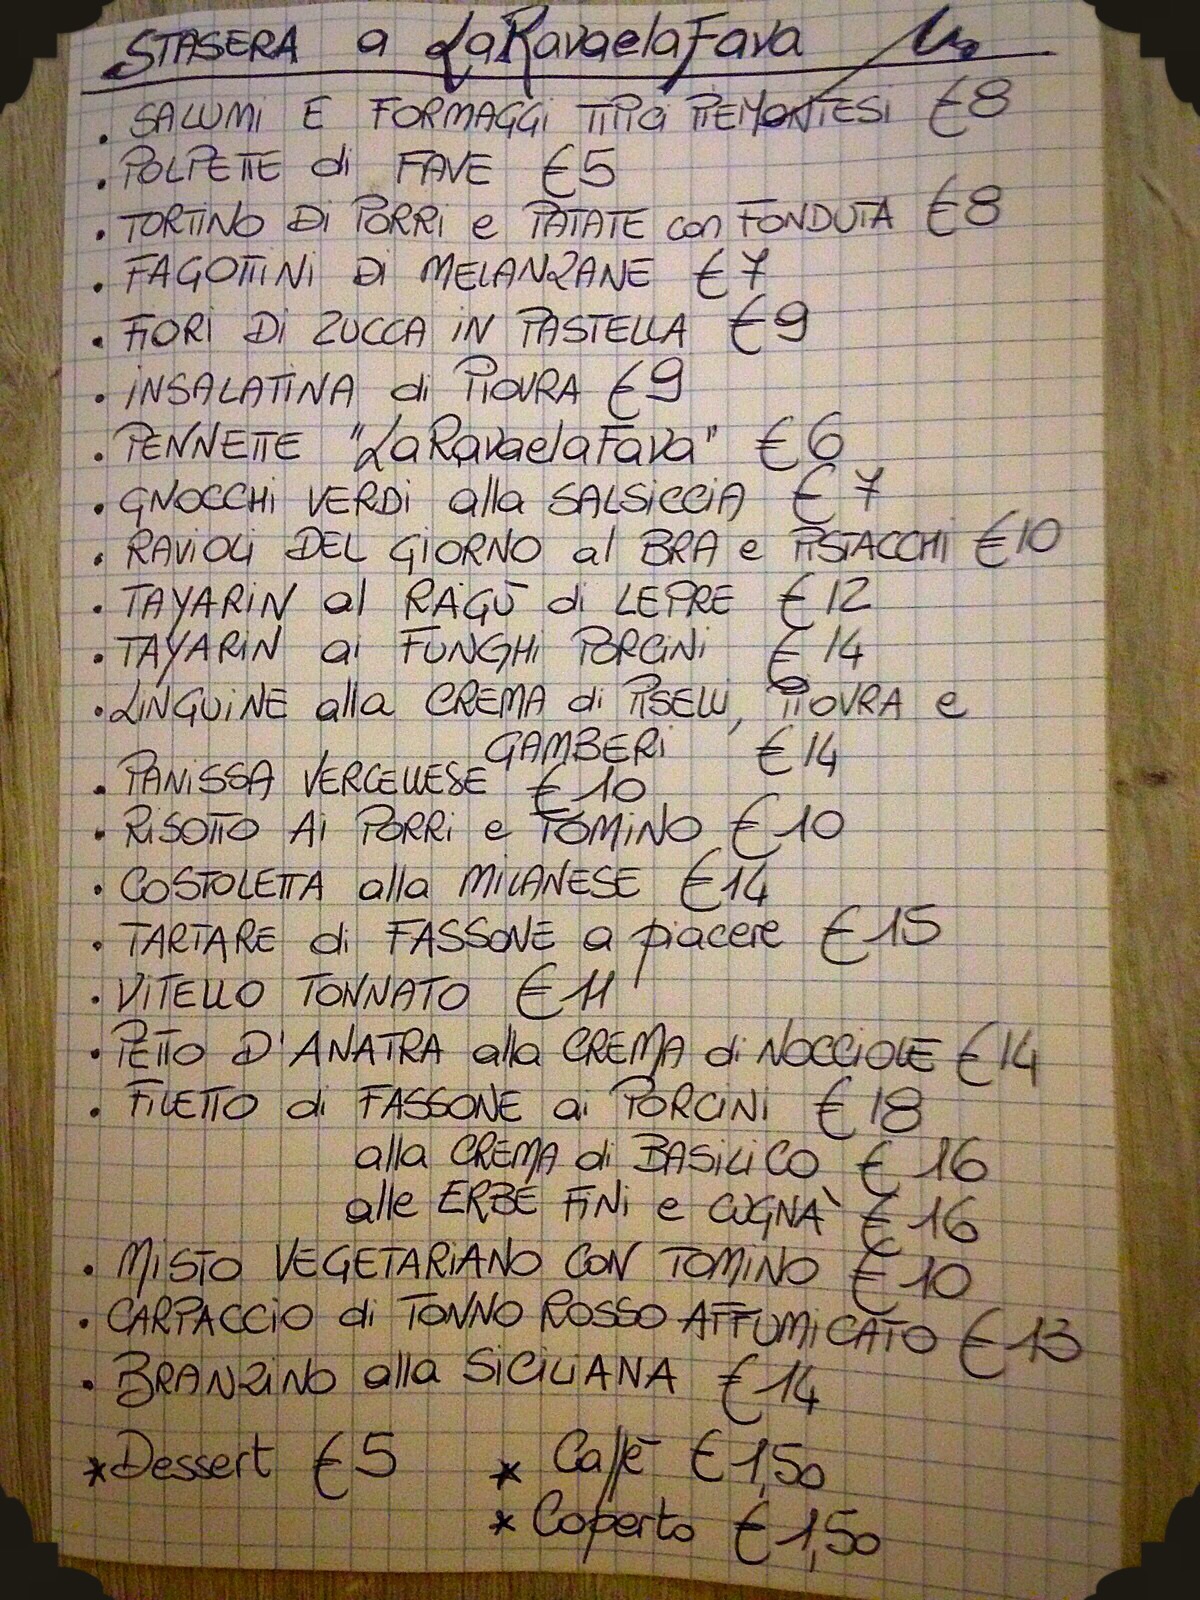 STASERA a LaRavaelaFava
. SALUMI E FORMAGGI TIPICI PIEMONTESI €8
. POLPETTE di FAVE €5
. TORTINO DI PORRI e PATATE con FONDUTA €8
. FAGOTTINI DI MELANZANE €7
. FIORI DI ZUCCA IN PASTELLA €9
. INSALATINA di PIOVRA €9
. PENNETTE "LaRavaelaFava" €6
. GNOCCHI VERDI alla SALSICCIA €7
. RAVIOLI DEL GIORNO al BRA e PISTACCHI €10
. TAYARIN al RAGÙ di LEPRE €12
. TAYARIN ai FUNGHI PORCINI €14
. LINGUINE alla CREMA di PISELLI, PIOVRA e
GAMBERI €14
. PANISSA VERCELLESE €10
. RISOTTO AI PORRI e TOMINO €10
. COSTOLETTA alla MILANESE €14
. TARTARE di FASSONE a piacere €15
. VITELLO TONNATO €11
. PETTO D'ANATRA alla CREMA di NOCCIOLE €14
. FILETTO di FASSONE ai PORCINI €18
alla CREMA di BASILICO €16
alle ERBE FINI e CUGNÀ €16
. MISTO VEGETARIANO CON TOMINO €10
. CARPACCIO di TONNO ROSSO AFFUMICATO €13
. BRANZINO alla SICILIANA €14
*Dessert €5 * Caffè €1,50
* Coperto €1,50